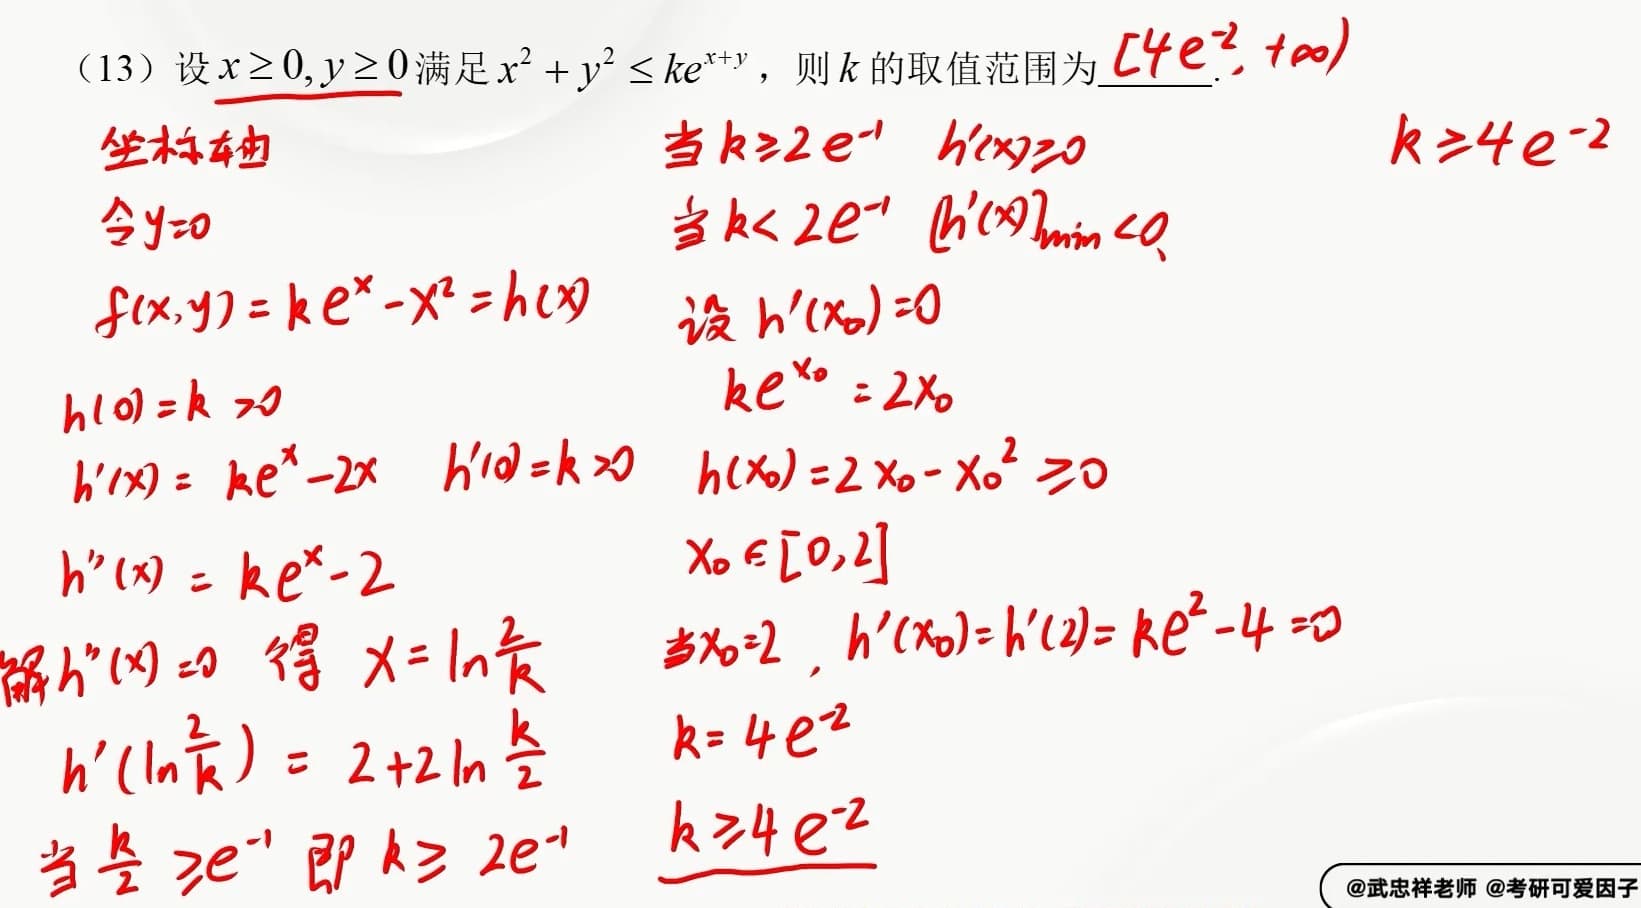 （13）设 x ≥ 0, y ≥ 0 满足 x² + y² ≤ ke^{x+y}，则 k 的取值范围为______. [4e^{-2}, +∞)
坐标轴
令y=0
f(x,y) = ke^x - x² = h(x)
h(0) = k >0
h'(x) = ke^x - 2x h'(0) = k >0
h''(x) = ke^x - 2
解h''(x)=0 得 x = ln 2/k
h'(ln 2/k) = 2+2ln k/2
当 k/2 ≥ e^{-1} 即 k ≥ 2e^{-1}
当 k ≥ 2e^{-1} h'(x) ≥ 0
当 k < 2e^{-1} [h'(x)]min < 0,
设 h'(x₀) = 0
ke^{x₀} = 2x₀
h(x₀) = 2x₀ - x₀² ≥ 0
x₀ ∈ [0,2]
当x₀=2, h'(x₀) = h'(2) = ke² - 4 = 0
k = 4e^{-2}
k ≥ 4e^{-2}
k ≥ 4e^{-2}
@武忠祥老师 @考研可爱因子